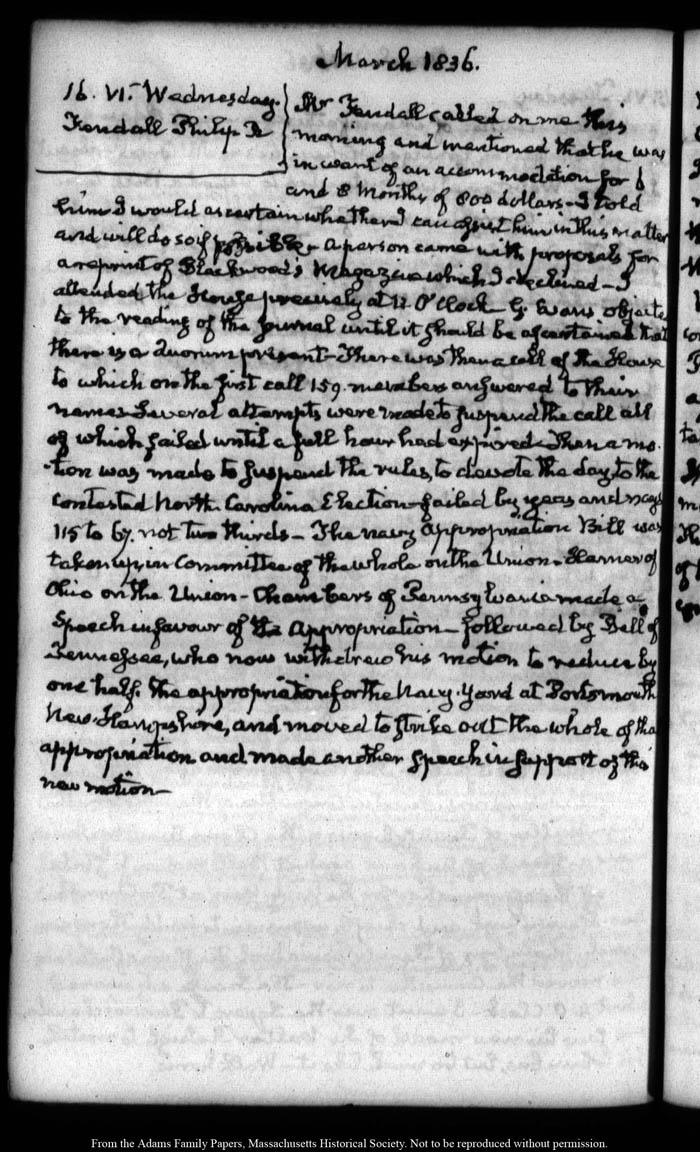 March 1836.
16. VI. Wednesday.
Fendall Philip R
Mr Fendall called on me this
morning and mentioned that he was
in want of an accommodation for 6
and 8 Months of 800 dollars- I told
him I would ascertain whether I can assist him in this matter
and will do so if possible- a person came with proposals for
a reprint of Blackwood's Magazine which I declined- I
attended the House precisely at 12. O'Clock- G. Evans objected
to the reading of the Journal until it should be ascertained that
there is a Quorum present- There was then a call of the House
to which on the first call 159. members answered to their
names Several attempts were made to suspend the call all
of which failed until a full hour had expired- Then a mo-
-tion was made to suspend the rules, to devote the day to the
Contested North-Carolina Election- failed by yeas and nays
115 to 67. not two thirds- The navy appropriation Bill was
taken up in Committee of the whole on the Union- Hamer of
Ohio on the Union- Chambers of Pennsylvania made a
Speech in favour of the appropriation- followed by Bell of
Tennessee, who now withdrew his motion to reduce by
one half the appropriation for the Navy-Yard at Portsmouth
New-Hampshire, and moved to strike out the whole of the
appropriation and made another speech in support of this
new motion-
From the Adams Family Papers, Massachusetts Historical Society. Not to be reproduced without permission.